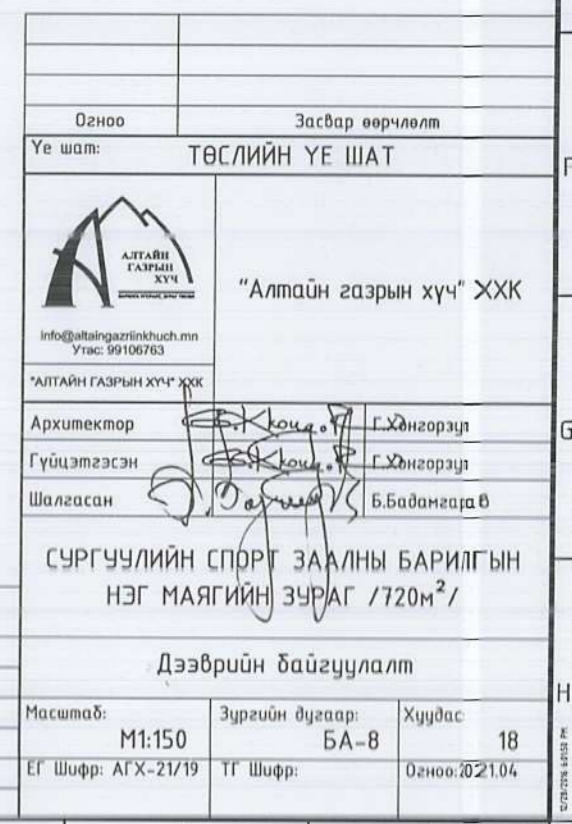 Огноо Засвар өөрчлөлт
Үе шат: ТӨСЛИЙН ҮЕ ШАТ
АЛТАЙН
ГАЗРЫН
ХҮЧ
info@altaingazriinkhuch.mn
Утас: 99106763
"АЛТАЙН ГАЗРЫН ХҮЧ" ХХК
"Алтайн газрын хүч" ХХК
Архитектор Г.Хонгорзул
Гүйцэтгэсэн Г.Хонгорзул
Шалгасан Б.Бадамгарав
СУРГУУЛИЙН СПОРТ ЗААЛНЫ БАРИЛГЫН
НЭГ МАЯГИЙН ЗУРАГ /720м²/
Дээврийн байгуулалт
Масштаб: Зургийн дугаар: Хуудас
М1:150 БА-8 18
ЕГ Шифр: АГХ-21/19 ТГ Шифр: Огноо:2021.04
F
G
H